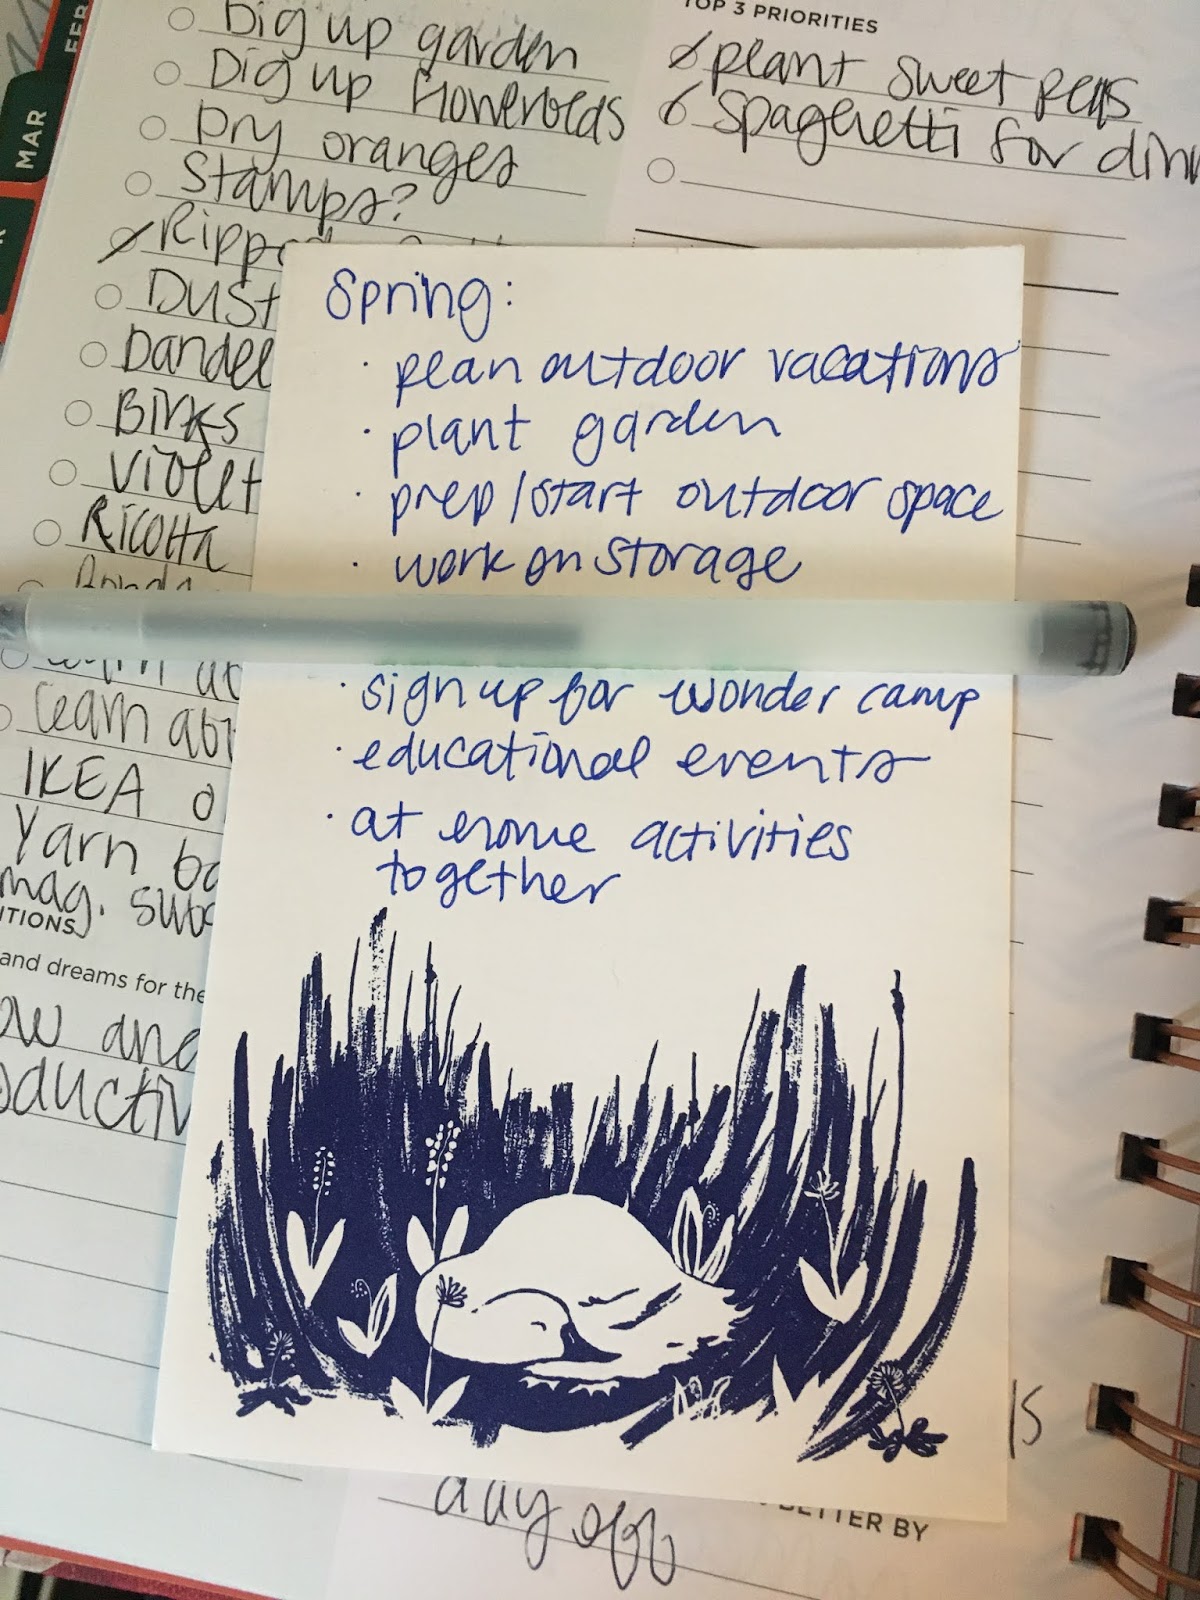 FEB
MAR
Dig up garden
Dig up flowerbeds
Dry oranges
Stamps?
Ripped
Dust
Dandel
Birks
Violet
Ricotta
learn abo
IKEA o
Yarn ba
mag. subs
ITIONS
and dreams for the
ow and
oductiv
TOP 3 PRIORITIES
plant sweet peas
spaghetti for dinn
Spring:
· plan outdoor vacations
· plant garden
· prep/start outdoor space
· work on storage
· sign up for wonder camp
· educational events
· at home activities
together
day off
BETTER BY